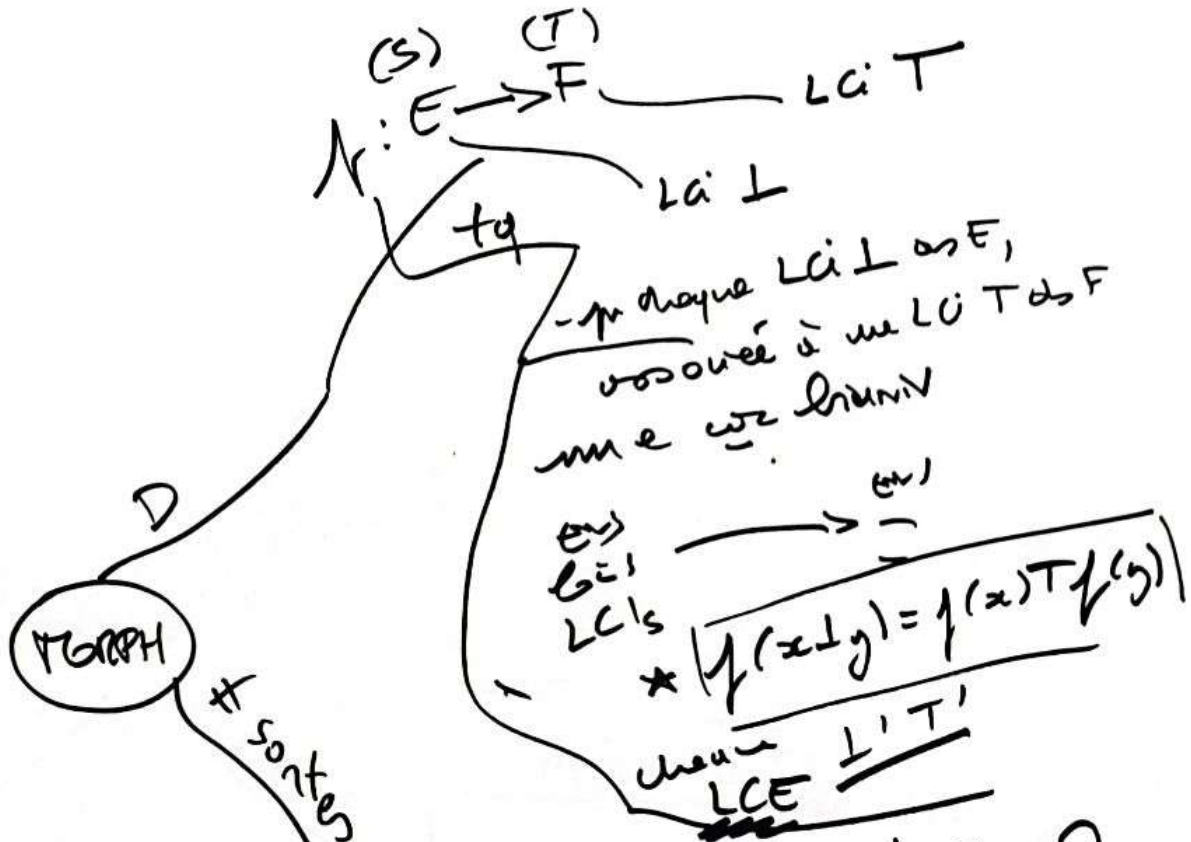 (S) (T)
: E → F LCi T
LCi ⊥
tq
chaque LCi ⊥ ds E,
associée à une LCi T ds F
une biuniv
ens → ens
LCIs
★ f(x⊥y) = f(x)Tf(y)
chaque ⊥' T'
LCE
D
MORPH
≠ sortes